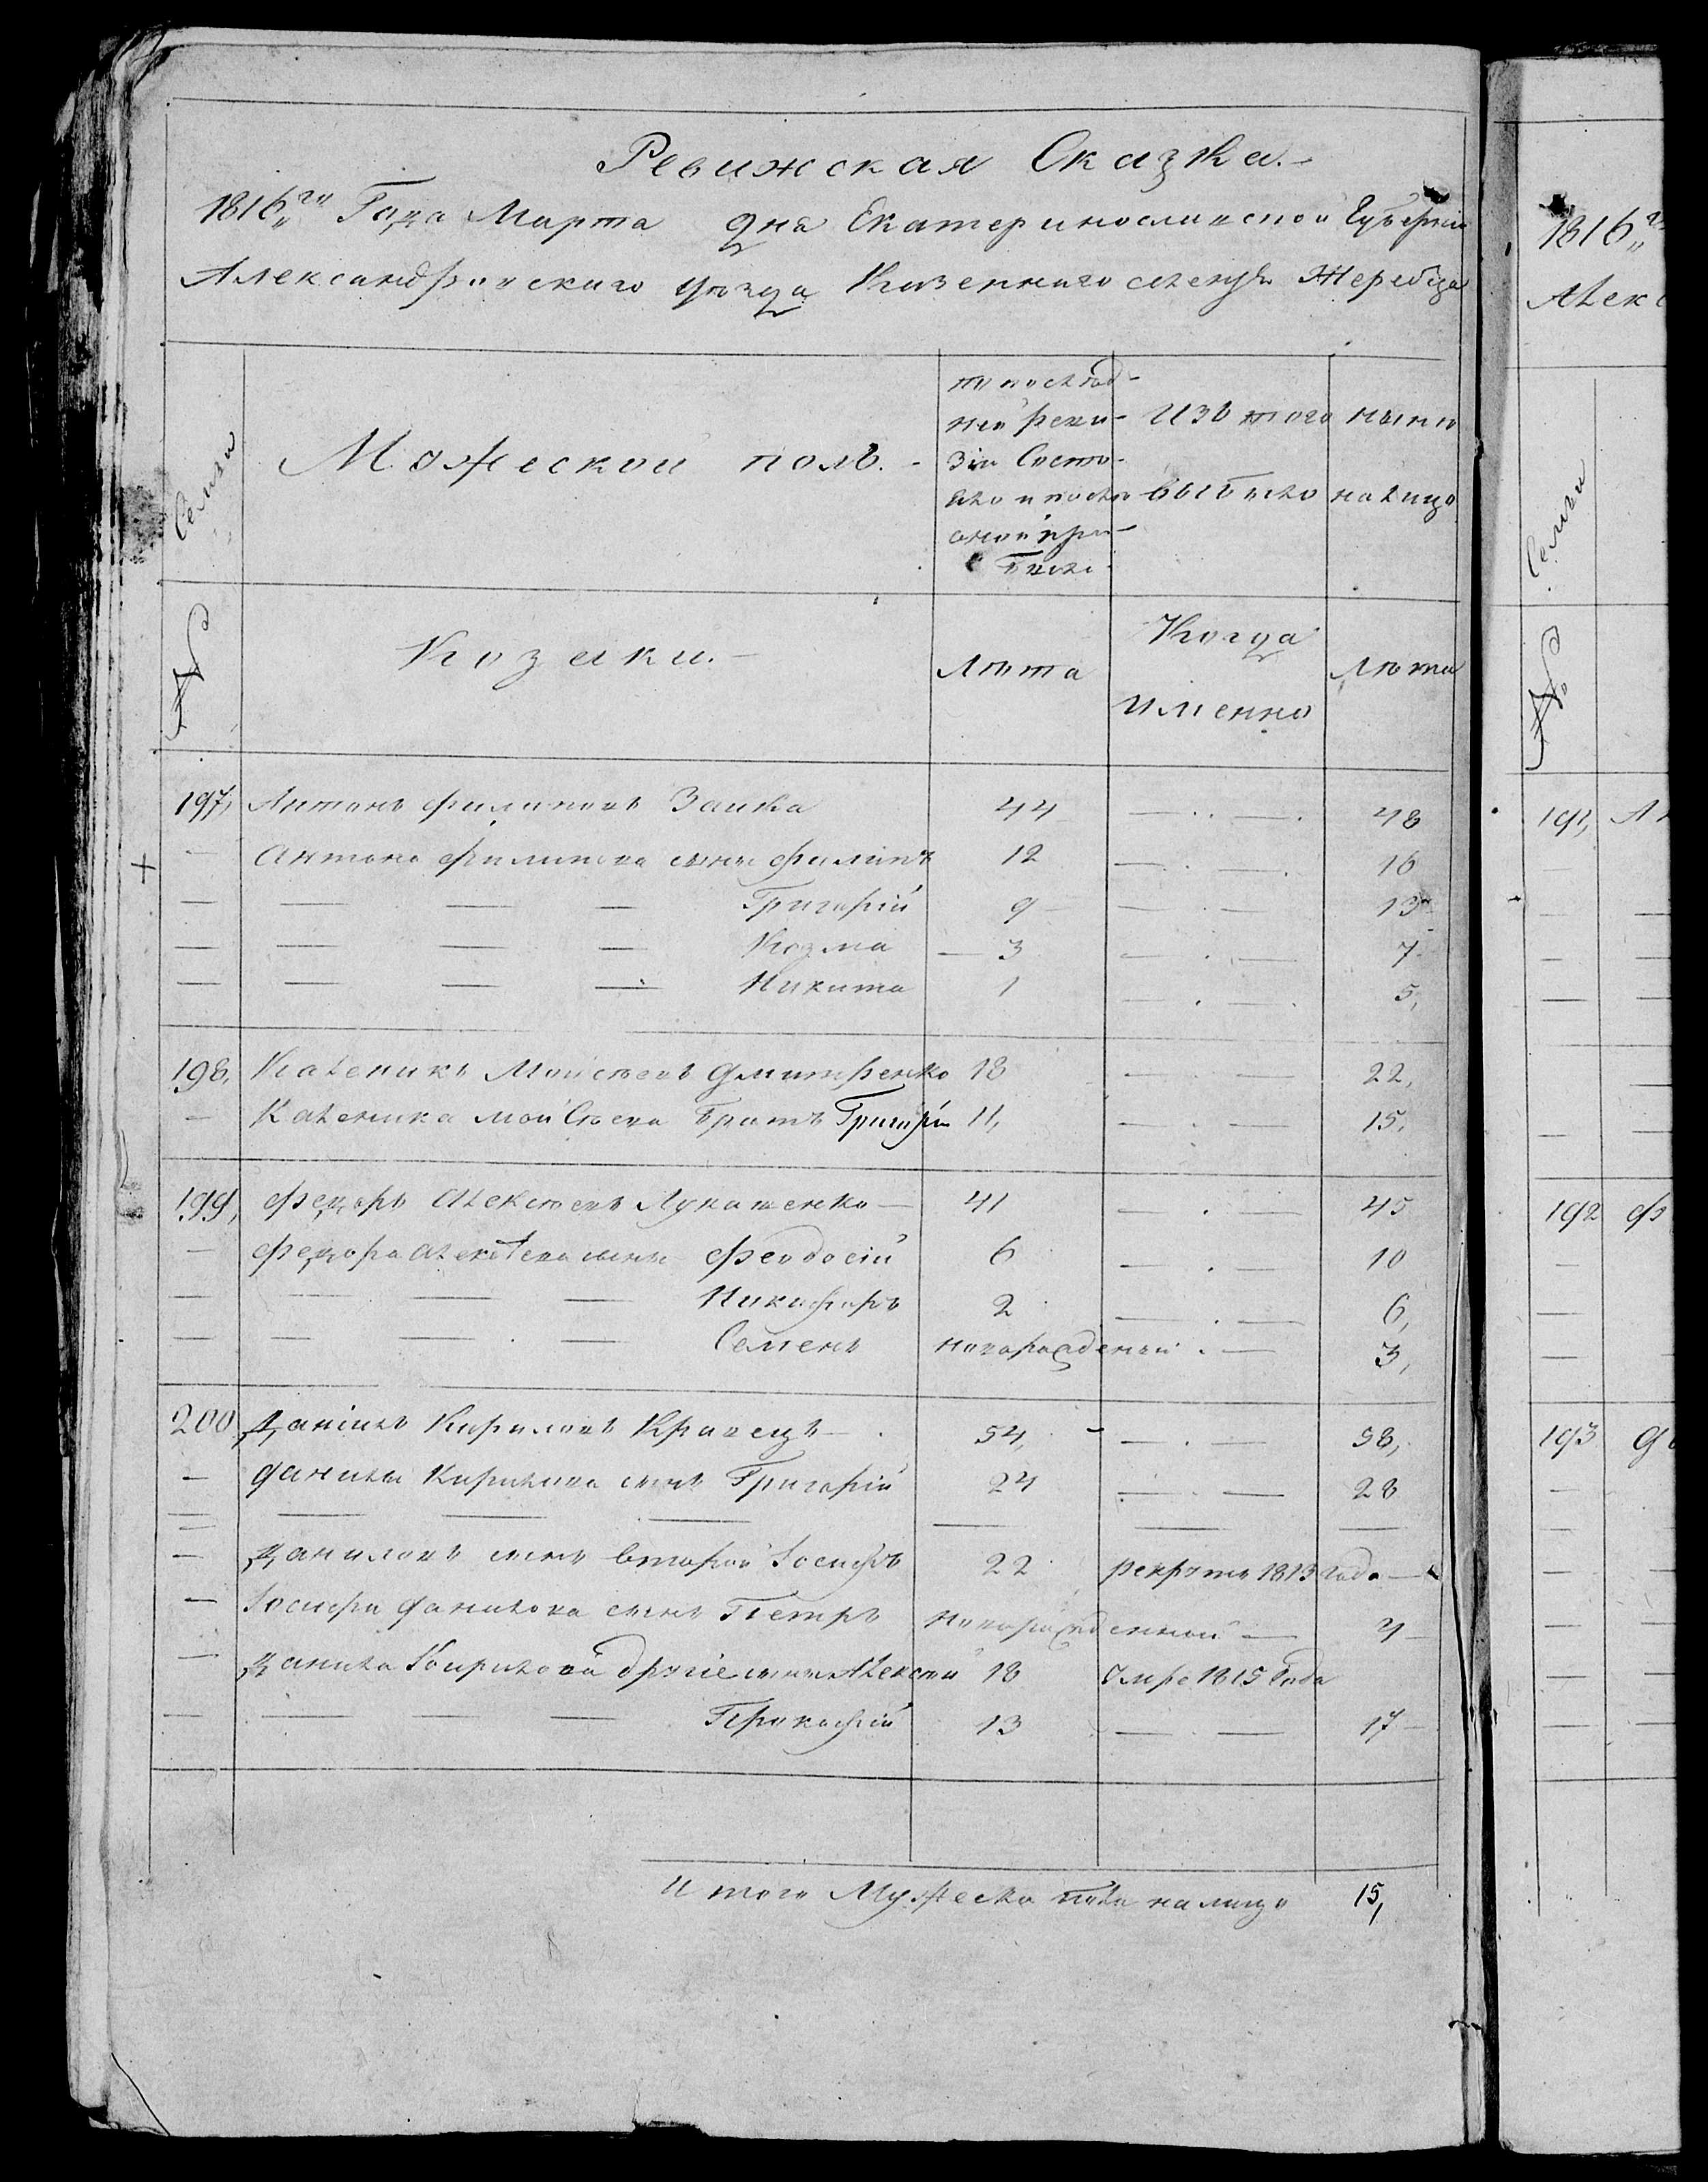 Ревижская Сказка.-
1816„го Года Марта дня Екатеринославской Губернiи
Александровского уѣзда Казенного селенiя Жеребца
Семьи
Мужеской полъ.-
по послѣд-
ней реви-
зiи Состо-
яло и после
оной при-
было
Изъ того
выбыло
нынѣ
налицо
№
Козаки.-
Лѣта
Когда
именно
Лѣта
197, Антонъ Филиповъ Заика 44 — . . — . 48
— Антона Филипова сыны Филипъ 12 — . — . 16
— — — — Григорiй 9 — . — 13
— — — — Козма — 3 — . — 7
— — — — Никита 1 — . — . 5,
198, Каленикъ Мойсѣевъ Дмитренко 18 — . — 22,
— Каленика Мойсѣева братъ Григорiй 11, — . — 15,
199, Федоръ Алексѣевъ Лукашенко — 41 — . — 45
— Федора Алексѣева сыны Феодосiй 6 — . — 10
— — — — Никифоръ 2 — . — 6,
— — — . — Семенъ новорожденный . — 3,
200 Данiилъ Кириловъ Кравецъ — . 54, - — . — 58,
— Данилы Кирилова сынъ Григорiй 24 — . — 28
— Даниловъ сынъ второй Iосифъ 22 рекрутъ 1813 года —
— Iосифа Данилова сынъ Петръ Новорожденной — 4 —
— Данила Кирилова другiе сыны Алексѣй 18 Умре 1815 Года
— — — — Прокофiй 13 — . — 17 —
Итого Мужеска пола налицо 15,
1816„
Алек
Семьи
№
191, Ан
192 Ф
193 Д